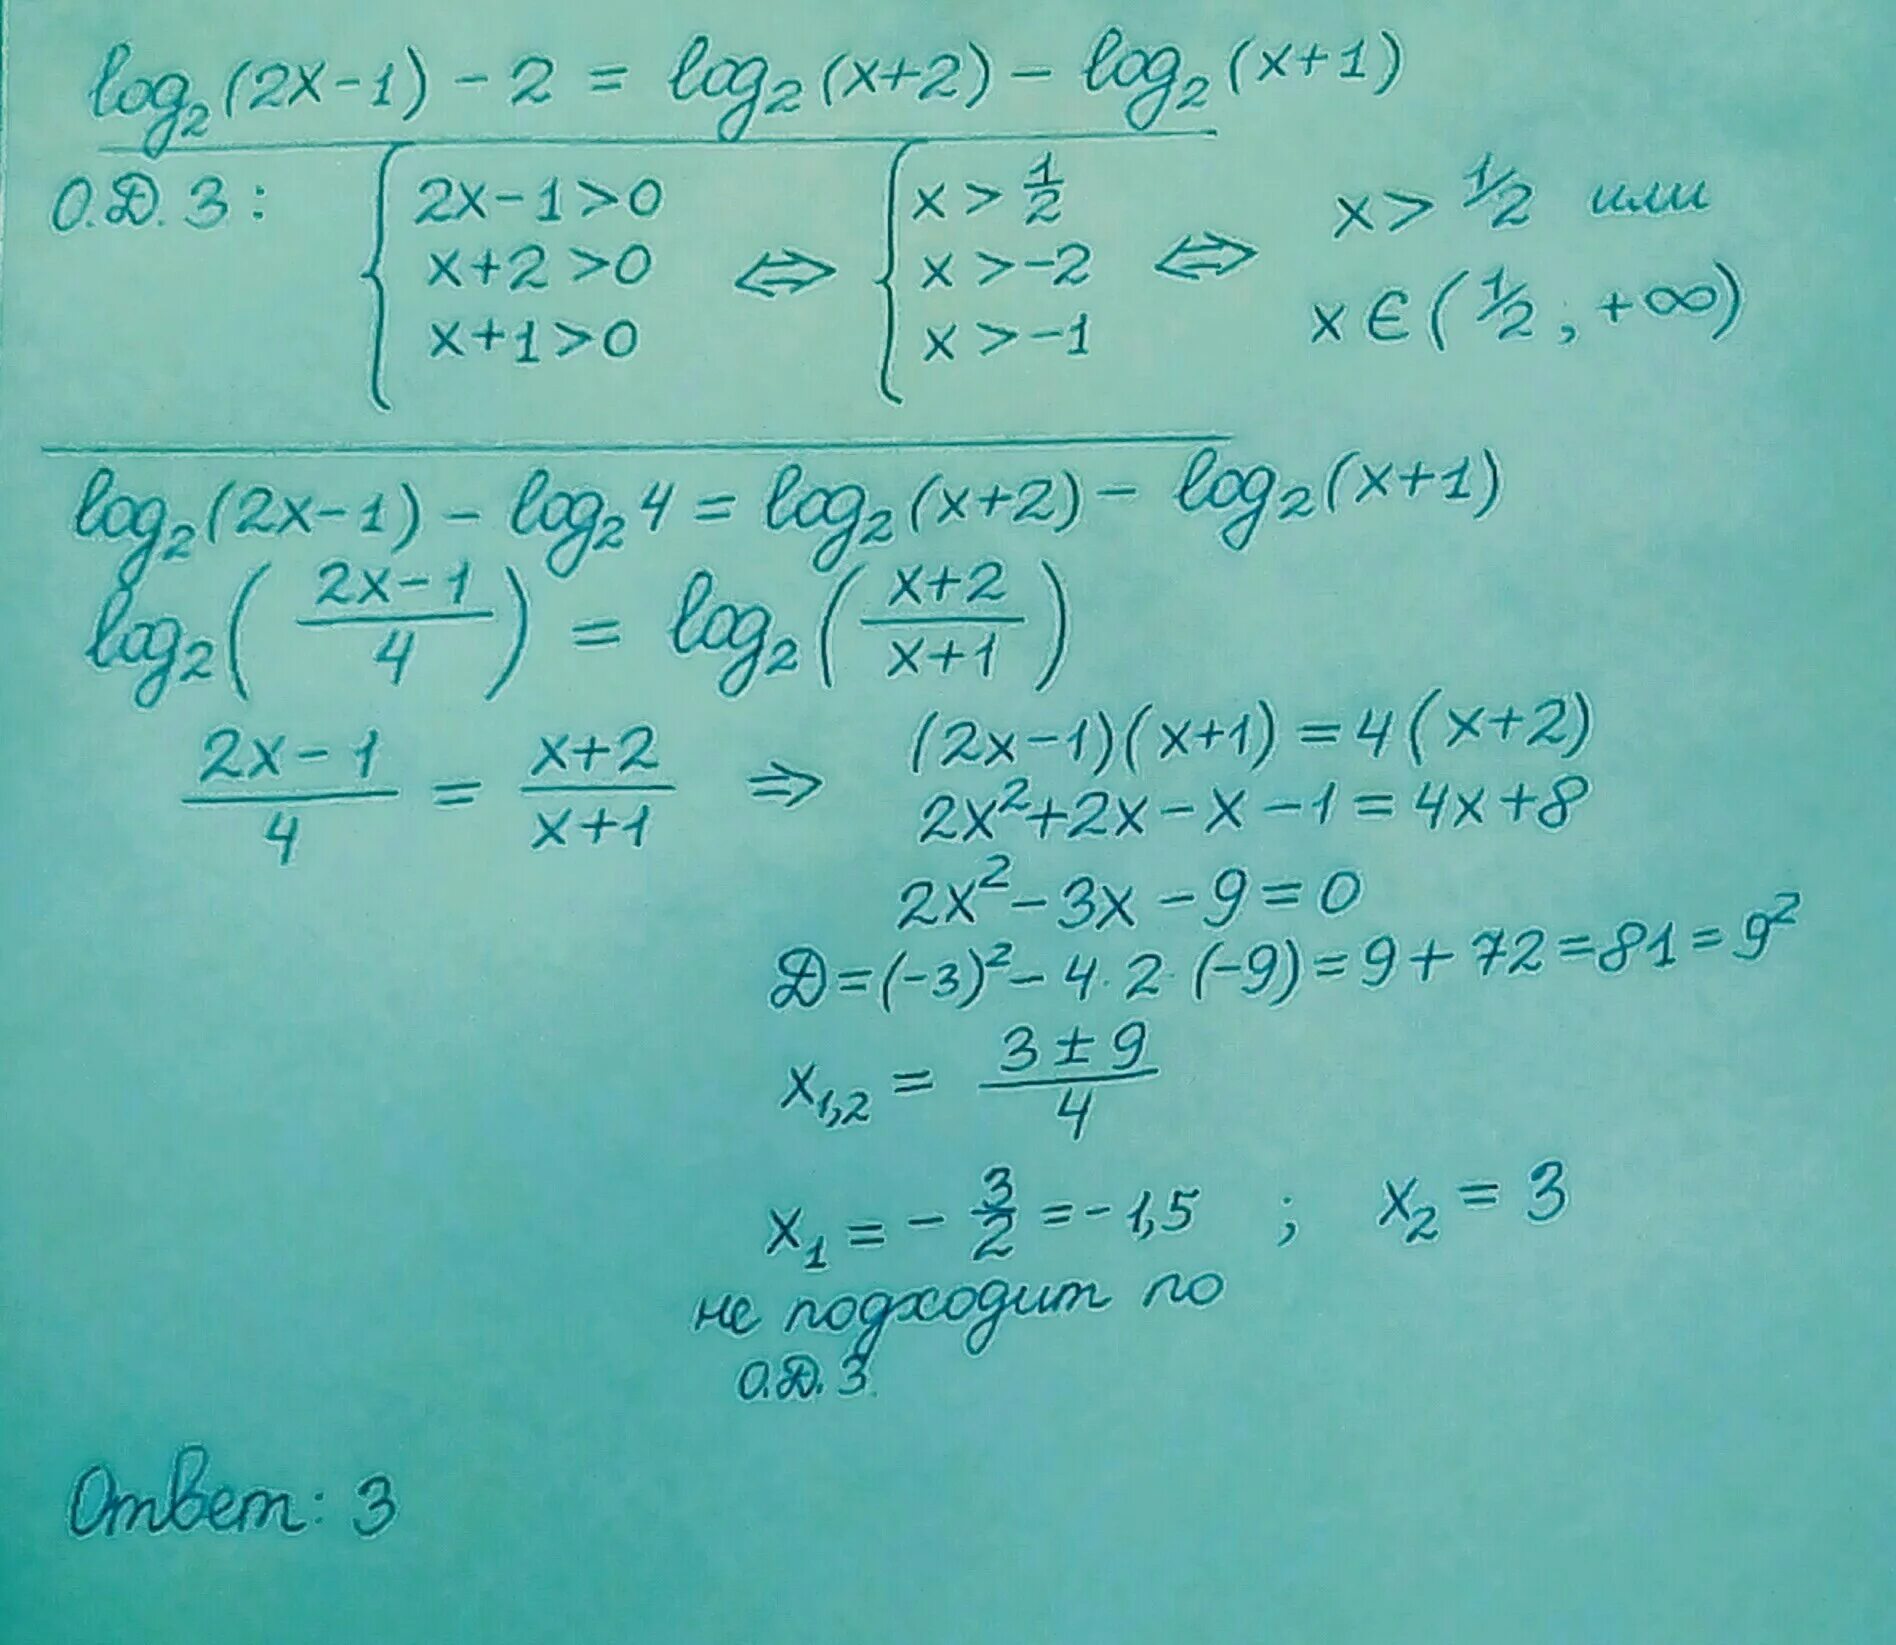 log₂(2x-1) - 2 = log₂(x+2) - log₂(x+1)
О.Д.З: { 2x-1>0 ⇔ { x > 1/2 ⇔ x > 1/2 или
x+2>0 x>-2 x∈(1/2; +∞)
x+1>0 x>-1
log₂(2x-1) - log₂4 = log₂(x+2) - log₂(x+1)
log₂((2x-1)/4) = log₂((x+2)/(x+1))
(2x-1)/4 = (x+2)/(x+1) ⇒ (2x-1)(x+1) = 4(x+2)
2x²+2x-x-1 = 4x+8
2x²-3x-9=0
Д=(-3)²-4·2·(-9)=9+72=81=9²
x₁,₂ = (3±9)/4
x₁ = -3/2 = -1,5 ; x₂ = 3
не подходит по
О.Д.З.
Ответ: 3